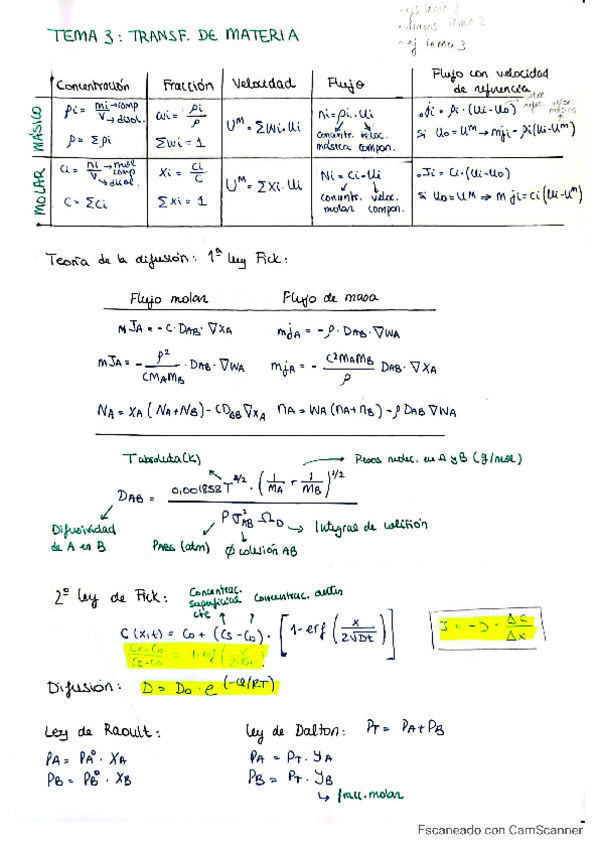 TEMA 3: TRANSF. DE MATERIA
Concentración Fracción Velocidad Flujo Flujo con velocidad de referencia
MÁSICO
ρi = mi/V → comp → disol.
ρ = Σρi
ωi = ρi/ρ
Σωi = 1
U^M = Σωi·Ui
ni = ρi·Ui
concentr. másica veloc. compon.
ji = ρi·(Ui-Uo)
si Uo = U^M → mji = ρi(Ui-U^M)
MOLAR
Ci = ni/V → mol comp → disol.
C = ΣCi
Xi = Ci/C
ΣXi = 1
U^M = ΣXi·Ui
Ni = Ci·Ui
concentr. molar veloc. compon.
Ji = Ci·(Ui-Uo)
si Uo = U^M ⇒ mji = Ci(Ui-U^M)
Teoría de la difusión: 1ª ley Fick:
Flujo molar Flujo de masa
mJA = -C·DAB·∇XA mjA = -ρ·DAB·∇WA
mJA = - ρ²/(CMAMB)·DAB·∇WA mjA = - C²MAMB/ρ DAB·∇XA
NA = XA(NA+NB) - CDBB∇XA nA = WA(nA+nB) - ρDAB∇WA
T absoluta (K) → Pesos molec. en A y B (g/mol)
DAB = 0,001858T^3/2·(1/MA + 1/MB)^1/2 / P σ²AB ΩD
→ Integral de colisión
Difusividad de A en B
PABS (atm) φ colisión AB
2ª ley de Fick: Concentrac. superficial cte Concentrac. antes
C(x,t) = Co + (Cs-Co)·[1-erf(x/2√Dt)]
J = -D·ΔC/Δx
Cx-Co/Cs-Co = 1-erf(x/2√Dt)
Difusión: D = Do·e^(-Q/RT)
Ley de Raoult: Ley de Dalton: PT = PA+PB
PA = PA°·XA PA = PT·yA
PB = PB°·XB PB = PT·yB
↳ fracc. molar
Escaneado con CamScanner